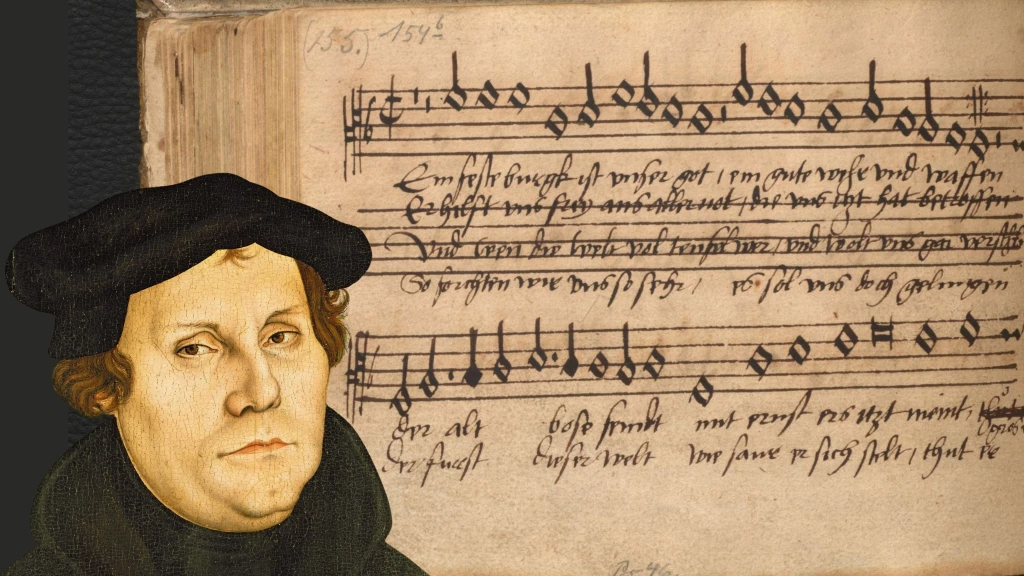 (155.) 154b
Ein feste burgk ist unser got, ein gute wehr und waffen
Er hilft uns frey aus aller not, die uns itzt hat betroffen
Und wen die welt vol teufel wer, und wolt uns gar
So forchten wir uns so sehr, es sol uns doch gelingen
der alt bose feindt mit ernst ers itzt meint,
der furst dieser welt wie saur er sich stelt, thut er